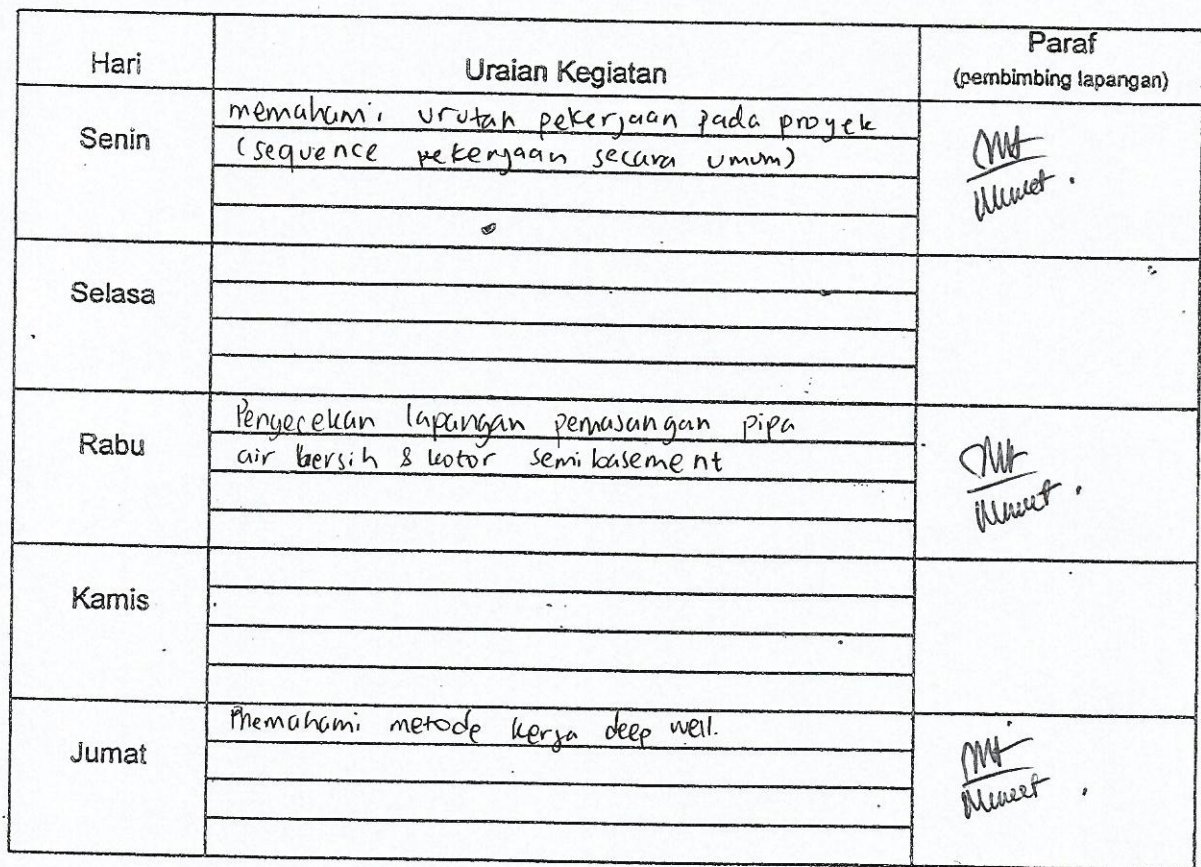 Hari
Uraian Kegiatan
Paraf
(pembimbing lapangan)
Senin
memahami urutan pekerjaan pada proyek
(sequence pekerjaan secara umum)
Selasa
Rabu
Pengecekan lapangan pemasangan pipa
air bersih & kotor semibasement
Kamis
Jumat
Memahami metode kerja deep well.